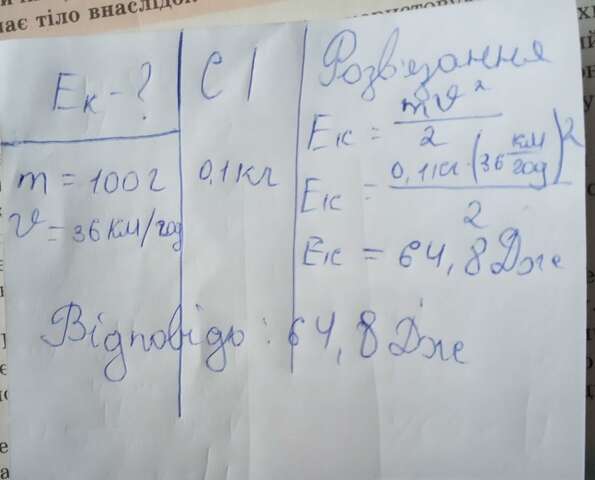 ає тіло внаслідок
Ек - ?
m = 100 г
v = 36 км/год
СІ
0,1 кг
Розв'язання
Ек = mv²/2
Ек = 0,1 кг · (36 км/год)²/2
Ек = 64,8 Дж
Відповідь: 64,8 Дж